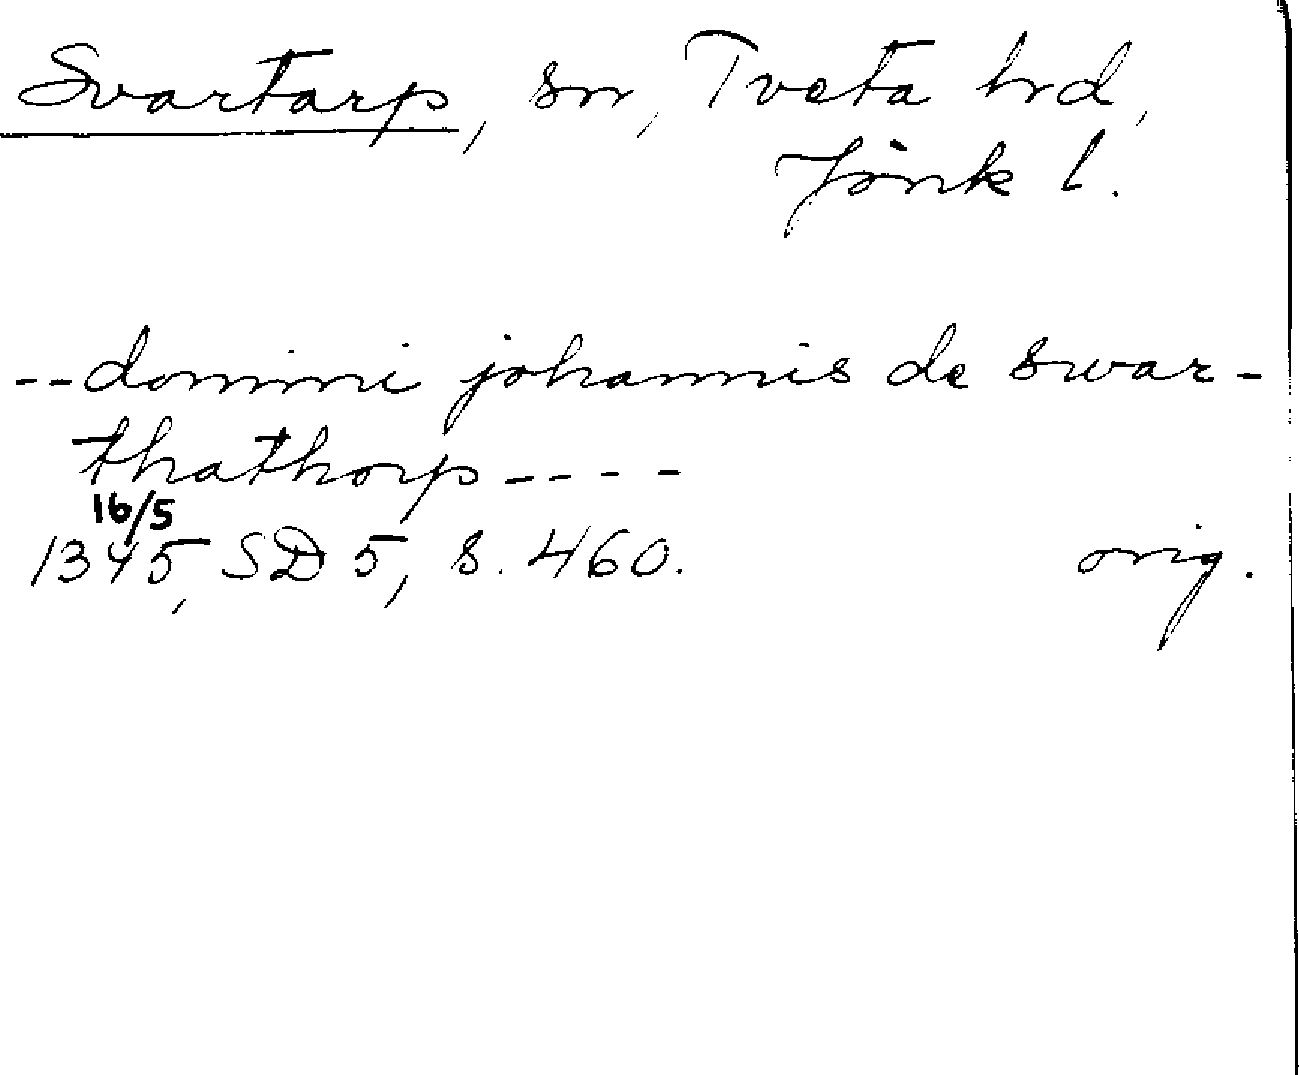 Svartarp, sn, Tveta hrd,
Jönk l.
--domini johannis de swar-
thathorp----
16/5
1345, SD 5, s. 460. orig.